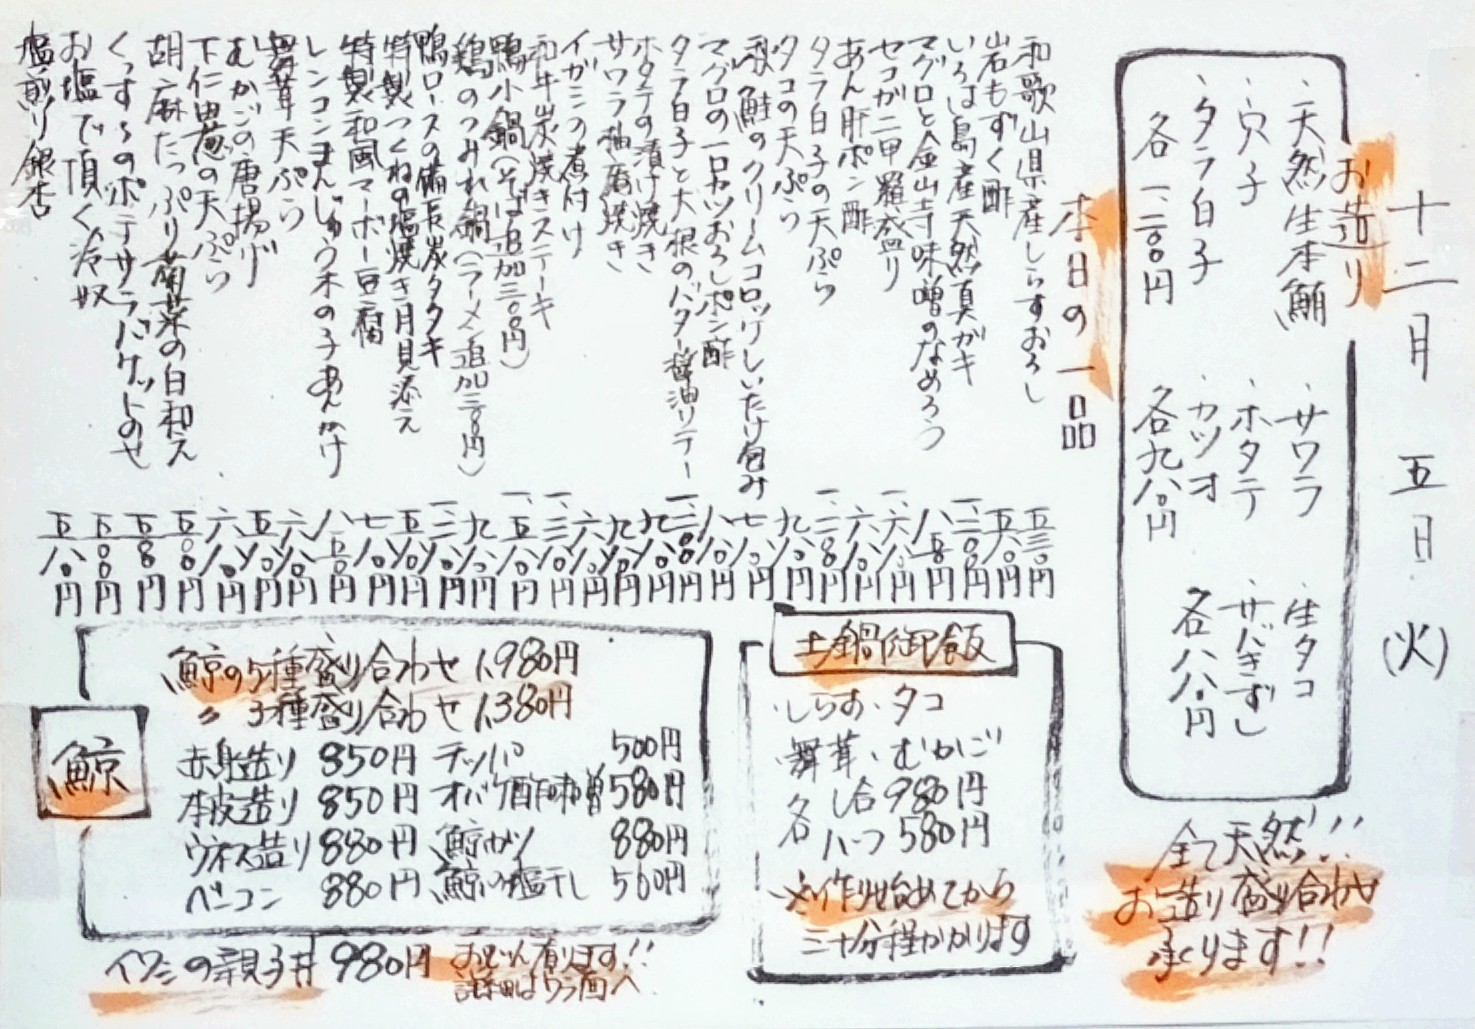 十二月五日(火)
お造り
・天然生本鮪
・穴子
・タラ白子
各一、二〇〇円
・サワラ
・ホタテ
・カツオ
各九八〇円
・生タコ
・サバきずし
各八八〇円
全て天然!!
お造り盛り合わせ
承ります!!
本日の一品
和歌山県産しらすおろし 五三〇円
岩もずく酢 五八〇円
島産天然真ガキ 一、二〇〇円
マグロと金山寺味噌のなめろう 八五〇円
セコガニ甲羅盛り 一、六八〇円
あん肝ポン酢 六八〇円
タラ白子の天ぷら 一、二〇〇円
タコの天ぷら 九八〇円
秋鮭のクリームコロッケしいたけ包み 七八〇円
マグロの一口カツおろしポン酢 八八〇円
タラ白子と大根のバター醤油ソテー 一、二〇〇円
ホタテの漬け焼き 九八〇円
サワラ柚庵焼き 九八〇円
イガミの煮付け 六八〇円
和牛炭焼きステーキ 一、三八〇円
鴨小鍋(そば追加三〇〇円) 一、五八〇円
鶏のつみれ鍋(ラーメン追加三〇〇円) 九八〇円
鴨ロースの備長炭タタキ 一、二八〇円
特製つくねの塩焼き月見添え 五八〇円
特製和風マーボー豆腐 七八〇円
レンコンまんじゅう木の子あんかけ 八五〇円
舞茸天ぷら 六八〇円
むかごの唐揚げ 五八〇円
下仁田葱の天ぷら 六八〇円
胡麻たっぷり菊菜の白和え 五五〇円
ポテサラバケットのせ 五五〇円
お塩で頂く冷奴 五〇〇円
塩煎り銀杏 五八〇円
土鍋御飯
・しらす・タコ
舞茸・むかご
各 一合 980円
ハーフ 580円
※作り始めてから
三十分程かかります
鯨
鯨の5種盛り合わせ 1,980円
〃 3種盛り合わせ 1,380円
赤身造り 850円
本皮造り 850円
ウネス造り 880円
ベーコン 880円
テッパ 500円
オバケ酢味噌 580円
鯨カツ 880円
鯨の塩干し 560円
イワシの親子丼 980円
おでん有ります!!
詳細はウラ面へ